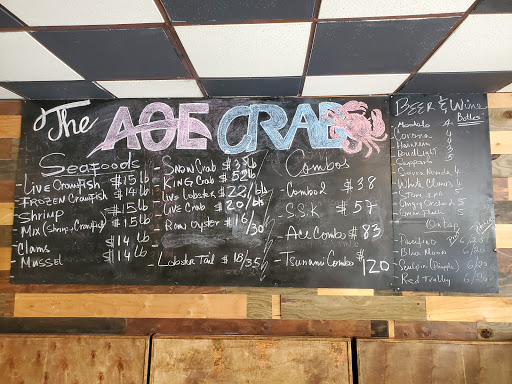 The AOE CRAB
Seafoods
- Live Crawfish $15 lb
- Frozen Crawfish $14 lb
- Shrimp $15 lb
- Mix (Shrimp, Crawfish) $15 lb
- Clams $14 lb
- Mussel $14 lb
- Snow Crab $38 lb
- King Crab $52 lb
- Live Lobster $22/lb
- Live Crab $20/lb
- Raw Oyster $16/30
- Lobster Tail $18/35
Combos
- Combo 2 $38
- S.S.K $57
- Ace Combo $83
- Tsunami Combo $120
BEER & Wine
Bottles
Modelo 4
Corona 4
Heineken 4
Bud Light
Sapporo 5
Sierra Nevada 4
White Claw 4
Stone ipa 5
Angry Orchard
On tap
Pacifico
Blue Moon
Sculpin (Pineapple)
Red Trolley